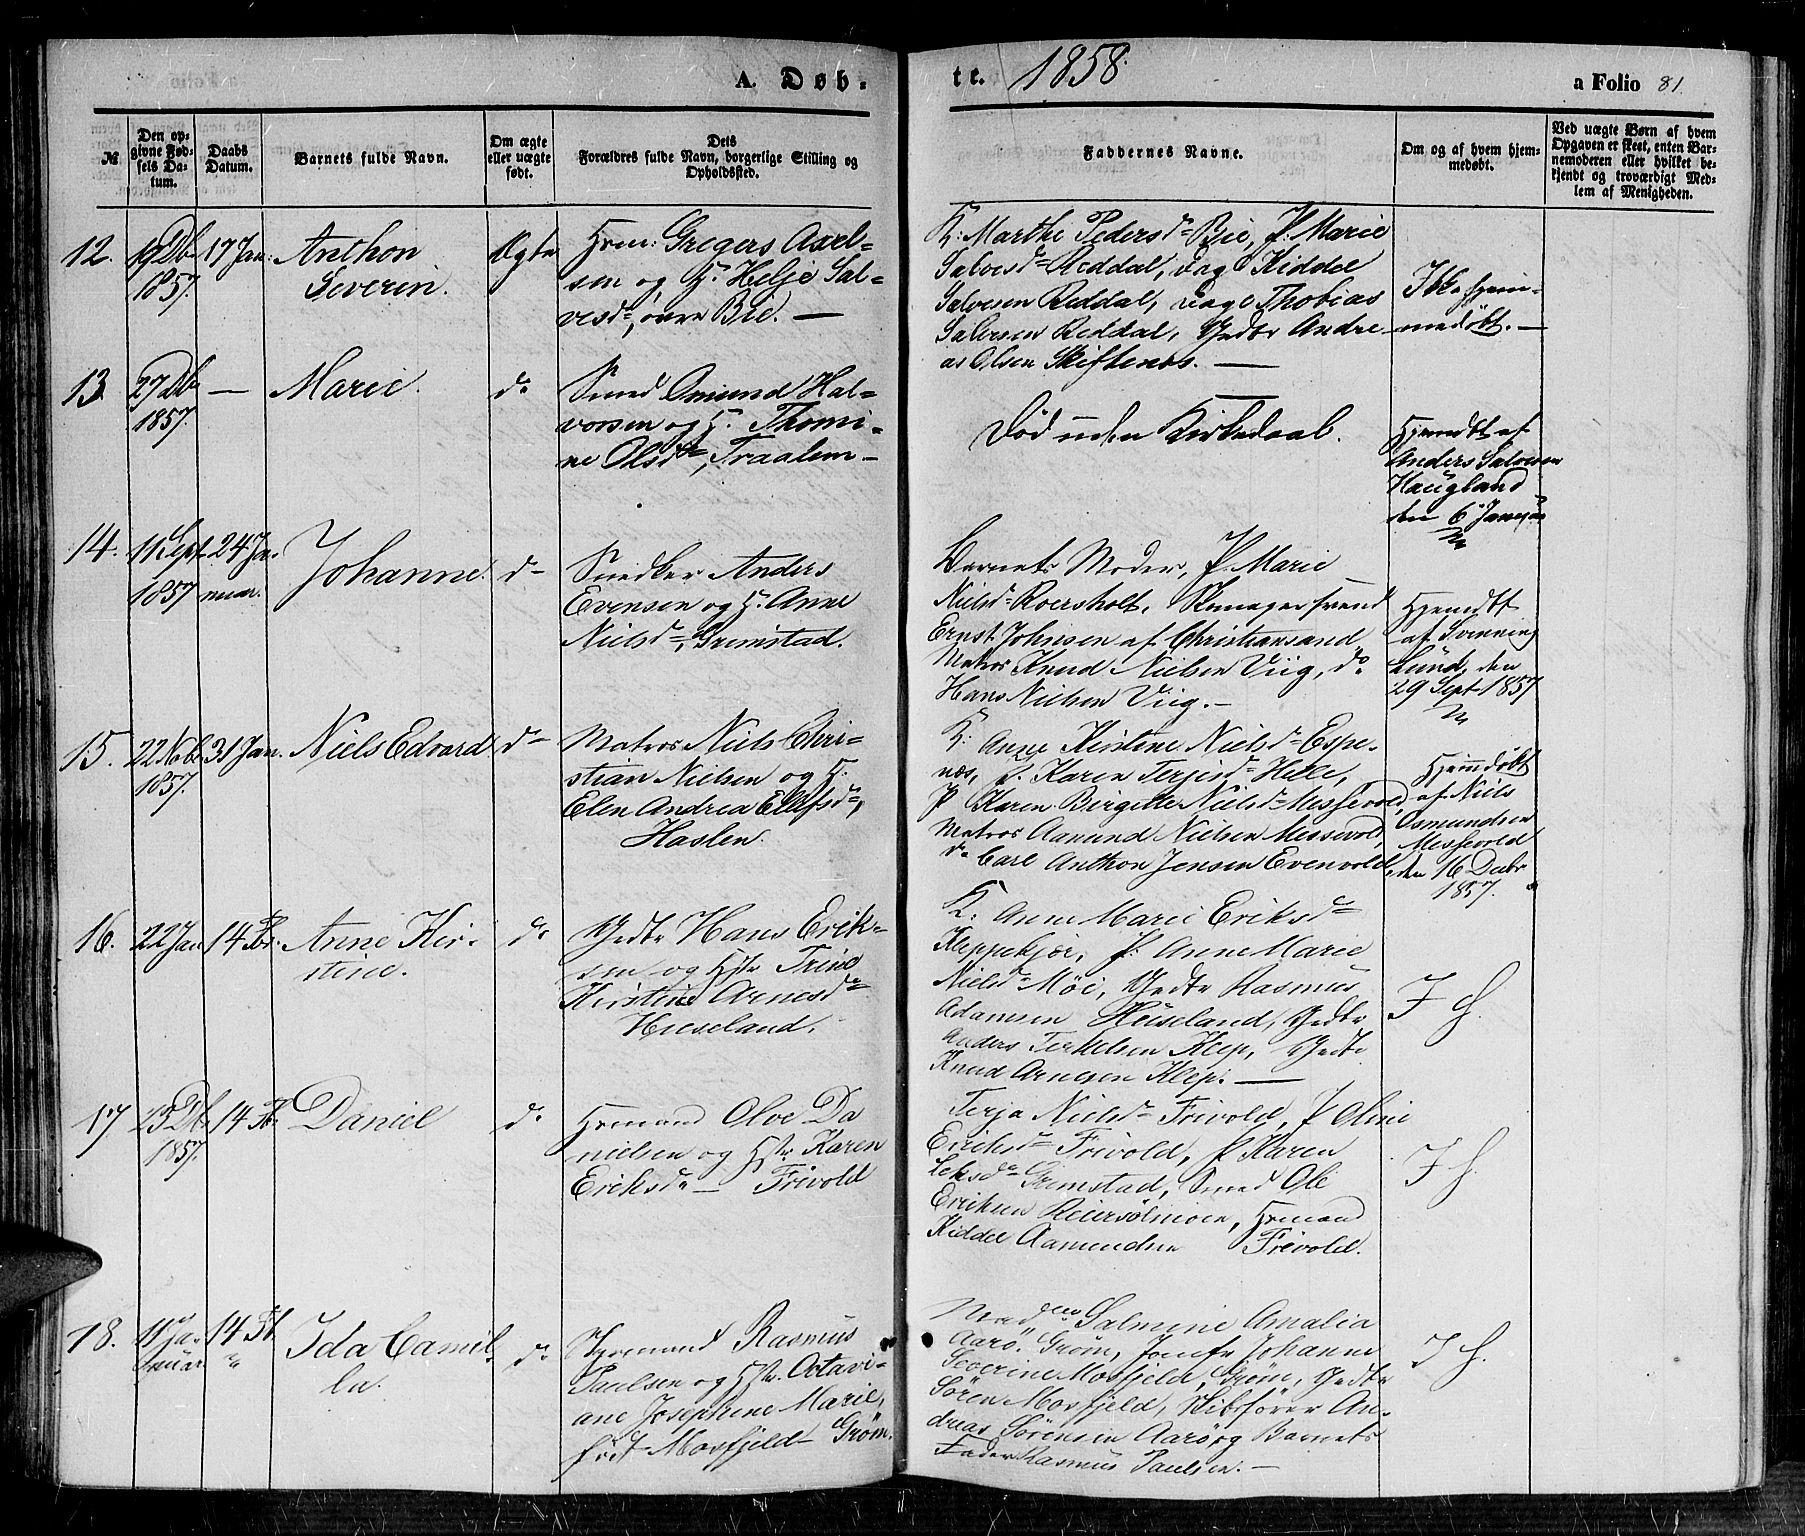 A. Døb-
te. 1858.
a Folio 81.
№
Den op-
givne Fød-
sels Da-
tum.
Daabs
Datum.
Barnets fulde Navn.
Om ægte
eller uægte
født.
Dets
Forældres fulde Navn, borgerlige Stilling og
Opholdssted.
Faddernes Navne.
Om og af hvem hjem-
medøbt.
Ved uægte Børn af hvem
Opgaven er skeet, enten Bar-
nemoderen eller hvilket be-
kjendt og troværdigt Med-
lem af Menigheden.
12.
19 Db
1857.
17 Jan:
Anthon
Severin.
Ægte
Hrm: Gregers Axel-
sen og H. Helje Sal-
vesd., øvre Bie. —
K: Marthe Pedersd. Bie, P. Marie
Salvesd. Reddal, Ung Kiddel
Salvesen Reddal, Ung Thobias
Salvesen Reddal, Gdbr Andre-
as Olsen Skiftenes. —
Ikke hjem-
medøbt. —
13.
27 Db
1857.
—
Marie.
do
Smed Omund Hal-
vorsen og H. Thomi-
ne Olsdtr, Fraalem—
Død uden Kirkedaab.
Hjemdt af
Anders Salvesen
Haugland
den 6 Januar
14.
11 Sept
1857
24 Ja-
nuar.
Johanne.
do
Snedker Anders
Evensen og H. Anne
Nielsd., Grimstad.
Barnets Moder, P. Marie
Nielsd. Roersholt, Skomagersvend
Ernst Johnsen af Christiansand,
Matros Knud Nielsen Viig, do
Hans Nielsen Viig. —
Hjemdt
af Svenning
Lund, den
29 Sept 1857
15.
22 Nob
1857.
31 Jan.
Niels Edvard
do
Matros Niels Chri-
stian Nielsen og H.
Elen Andrea Ellefsd.,
Haslen.
K: Anne Kirstine Nielsd. Espe-
næs, P. Karen Terjesd. Helle,
P Karen Birgitte Nielsd. Messevold,
Matros Aamund Nielsen Messevold,
do Carl Anthon Jensen Evenvold,
Hjemdøbt
af Niels
Osmundsen
Messevold
den 16 Decbr
1857.
16.
22 Jan
14 Fbr.
Anne Kir-
stine.
do
Gdbr Hans Erik-
sen og Hstr Trine
Kirstine Arnesd.
Hieseland.
K: Anne Marie Eriksd.
Kleppekjær, P: Anne Marie
Nielsd. Møi, Gdbr Rasmus
Adamsen Heiseland, Gdbr
Anders Terkelsen Klep, Gdbr
Knud Arnesen Klep. —
I H.
17
15 Db.
1857.
14 Fb.
Daniel
do
Hrmand Olve Da
nielsen og Hstr Karen
Eriksd. — Frivold
Terja Nielsd. Frivold, P Oline
Eriksd. Frivold, P Karen
Grimstad, Smed Ole
Eriksen Reiersølmoen, Hrmand
Kiddel Aamundsen Frivold.
I H.
18.
11 Ja-
nuar.
14 Fb
Ida Camil-
la.
do
Styrmand Rasmus
Paulsen og Hstr. Octavi-
ane Josephine Marie,
født Mosfjeld — Grøm.
Salmine Amalia
Aarø. Grøm, Jomfr Johanne
Severine Mosfjeld, Grøm, Gdbr
Sören Mosfjeld, Skibsfører An-
dreas Sörensen Aarø og Barnets
Fader Rasmus Paulsen. —
I H.